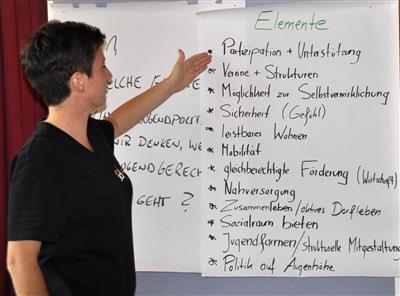 Elemente
* Partizipation + Unterstützung
* Vereine + Strukturen
* Möglichkeit zur Selbstverwirklichung
* Sicherheit (Gefühl)
* leistbares Wohnen
* Mobilität
* gleichberechtigte Förderung (Wirtschaft)
* Nahversorgung
* Zusammenleben/aktives Dorfleben
* Sozialraum bieten
* Jugendformen/strukturelle Mitgestaltung
* Politik auf Augenhöhe
JUGENDPOLIT
WIR DENKEN, WE
JUGENDGERECH
GEHT ?